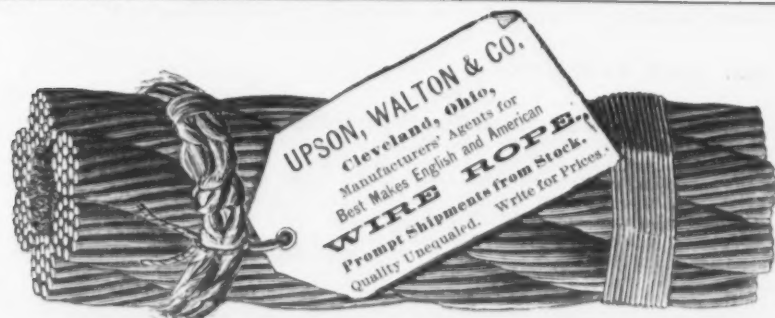 UPSON, WALTON & CO.
Cleveland, Ohio,
Manufacturers' Agents for
Best Makes English and American
WIRE ROPE,
Prompt Shipments from Stock.
Quality Unequaled. Write for Prices.